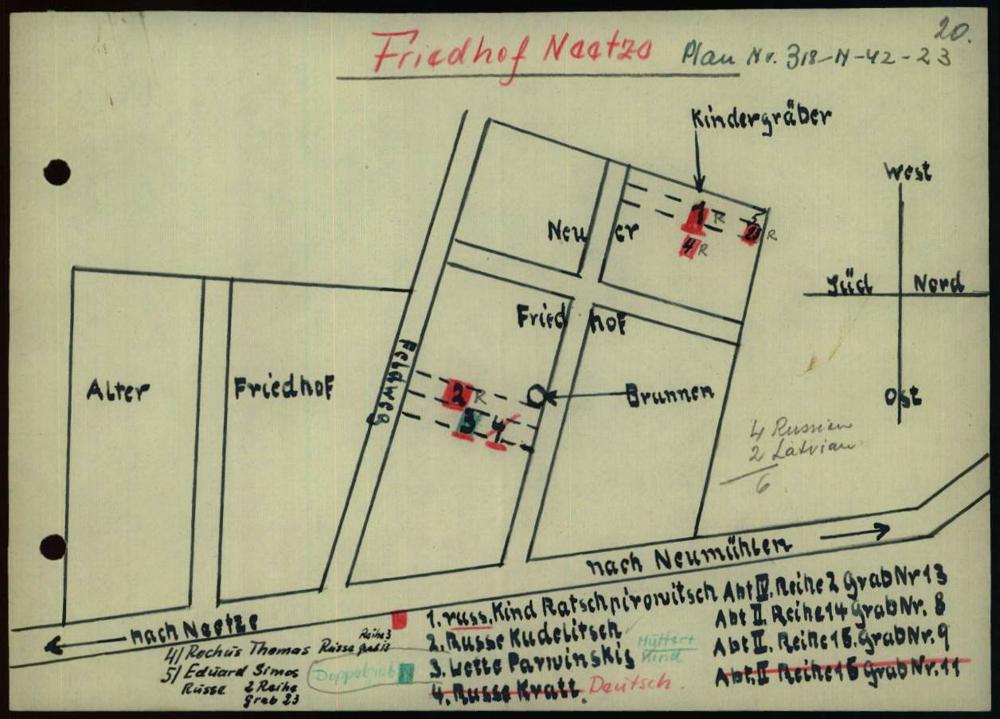 20.
Friedhof Neetze Plan Nr. 318-N-42-23
Kindergräber
West
1 R 5
23 R
4 R
Neu er
Süd Nord
Fried hof
Feldweg
Alter Friedhof
2 R
Brunnen
Ost
3 4
4 Russian
2 Latvian
6
nach Neumühlen
nach Neetze
1. russ. Kind Ratschpirowitsch Abt IV. Reihe 2 Grab Nr 13
2. Russe Kudelitsch Abt II. Reihe 14 Grab Nr. 8
3. Lette Parwinskis Mutter+ Kind Abt II. Reihe 15. Grab Nr. 9
4. Russe Kratt. Deutsch. Abt. II Reihe 15 Grab Nr. 11
4/ Rochus Thomas Russe Reihe 3
5/ Eduard Simos Doppelgrab
Russe 2 Reihe
Grab 23